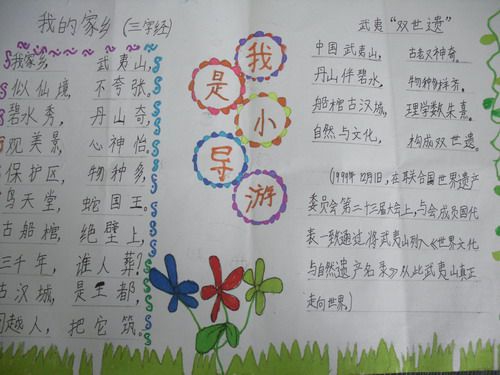 我的家乡 (三字经)
我家乡, 武夷山,
似仙境, 不夸张。
碧水秀, 丹山奇,
观美景, 心神怡。
保护区, 物种多,
鸟天堂, 蛇国王。
古船棺, 绝壁上,
三千年, 谁人葬?
古汉城, 是王都,
越人, 把它筑。
我是小导游
武夷“双世遗”
中国武夷山, 古老又神奇。
丹山伴碧水, 物种多样齐。
船棺古汉城, 理学数朱熹。
自然与文化, 构成双世遗。
(1999年12月1日,在联合国世界遗产
委员会第二十三届大会上,与会成员国代
表一致通过,将武夷山列入《世界文化
与自然遗产名录》从此武夷山真正
走向世界。)